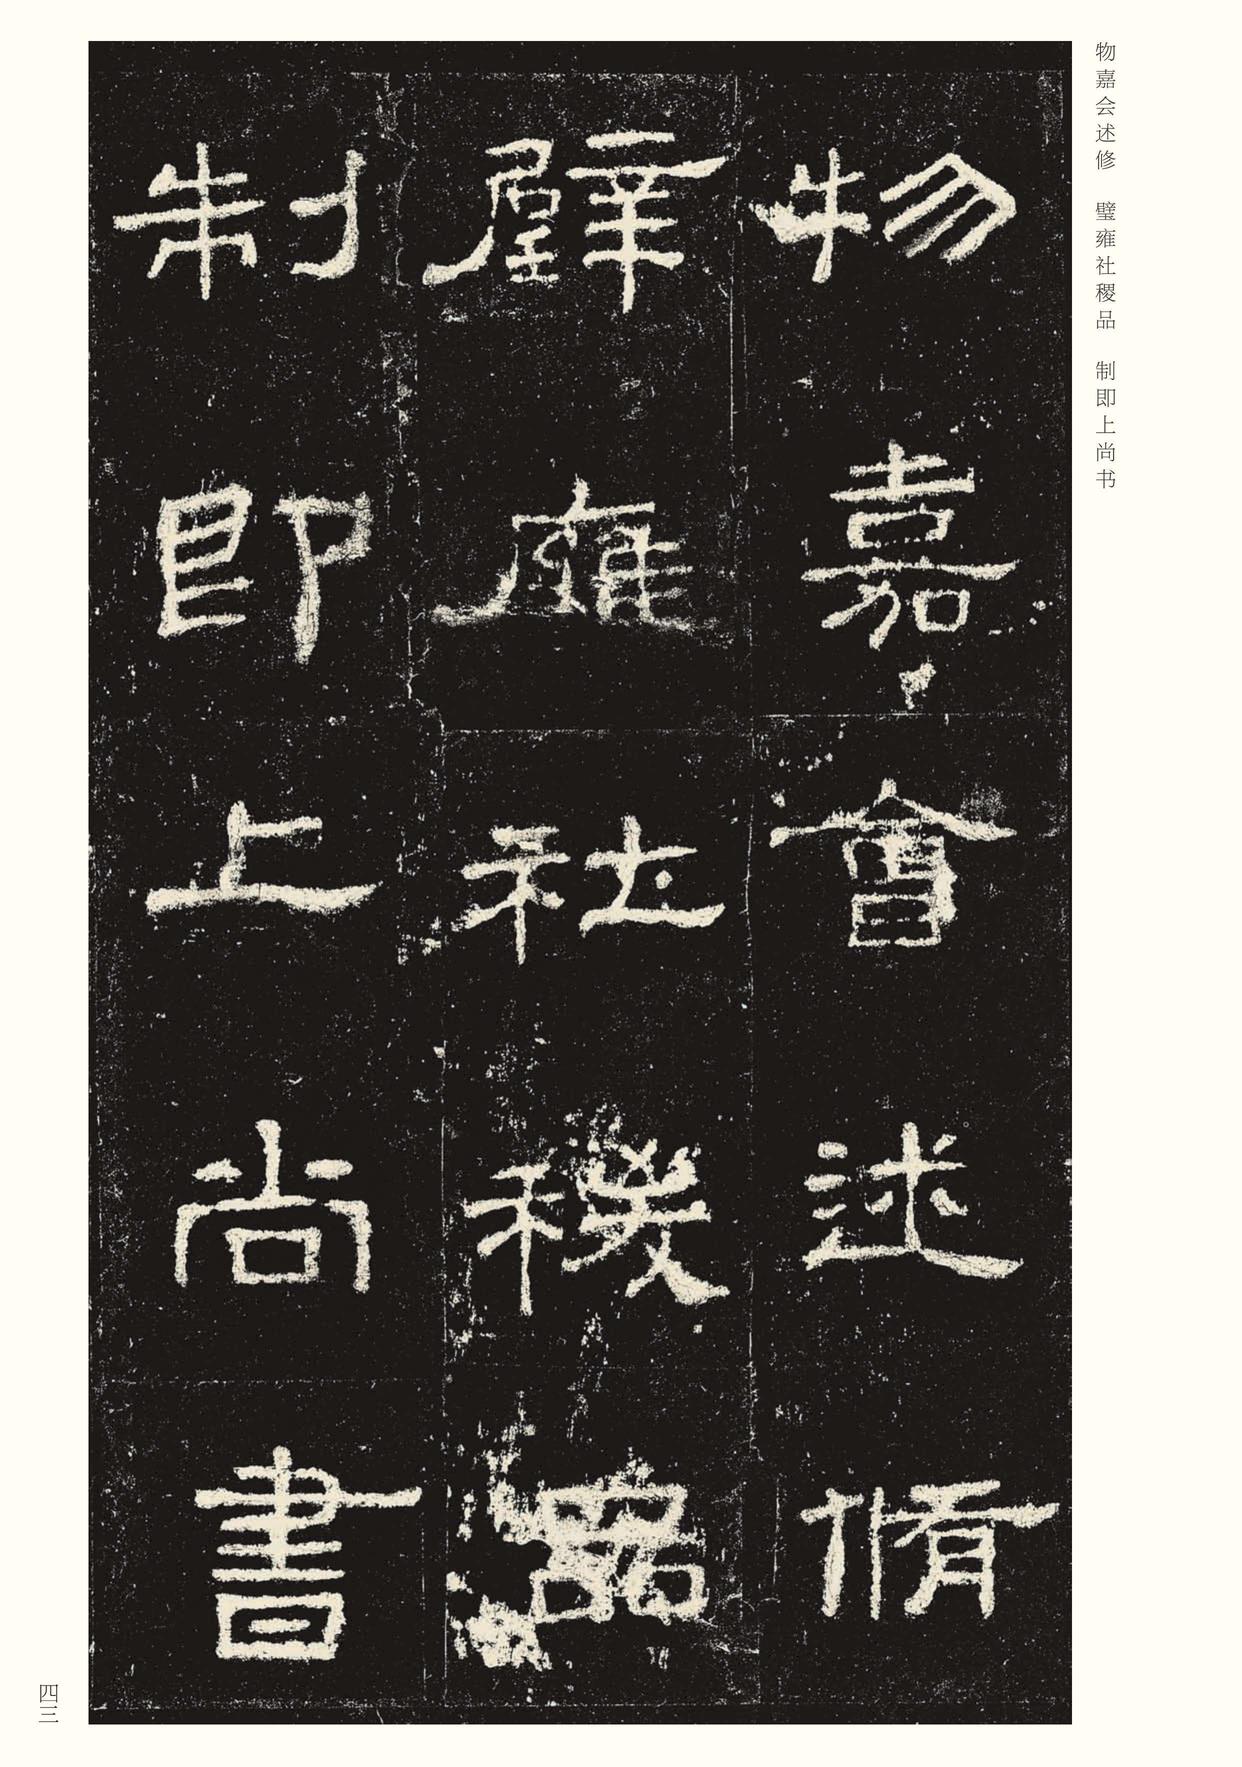 物嘉会述修　璧雍社稷品　制即上尚书
物嘉會述脩
璧雍社稷品
制即上尚書
四三